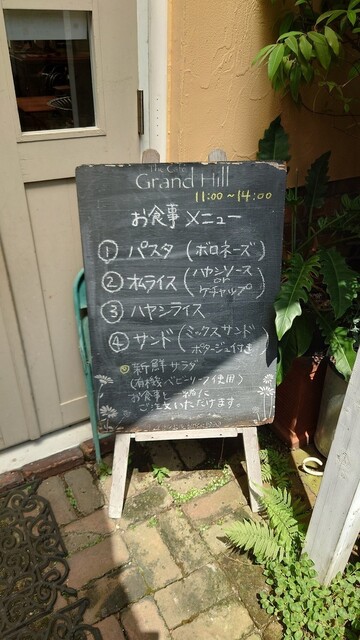 The Cafe
Grand Hill
11:00〜14:00
お食事メニュー
① パスタ (ボロネーズ)
② オムライス (ハヤシソース or ケチャップ)
③ ハヤシライス
④ サンド (ミックスサンド ポタージュ付き)
◎新鮮サラダ
(有機ベビーリーフ使用)
お食事と一緒に
ご注文いただけます。